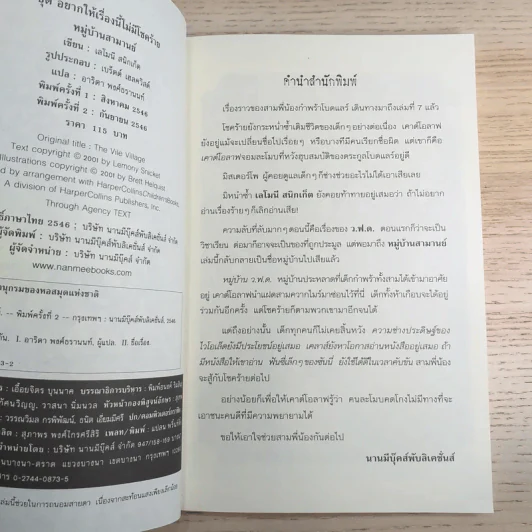 ชุด อยากให้เรื่องนี้ไม่มีโชคร้าย
หมู่บ้านสามานย์
เขียน : เลโมนี สนิกเก็ต
รูปประกอบ : เบร็ตต์ เฮลควิสต์
แปล : อาริตา พงศ์ธรานนท์
พิมพ์ครั้งที่ 1 : สิงหาคม 2546
พิมพ์ครั้งที่ 2 : กันยายน 2546
ราคา 115 บาท
Original title : The Vile Village
Text copyright © 2001 by Lemony Snicket
Illustrations copyright © 2001 by Brett Helquist
by arrangement with HarperCollinsChildrenBooks,
A division of HarperCollins Publishers, Inc.
Through Agency TEXT
ภาษาไทย 2546 : บริษัท นานมีบุ๊คส์พับลิเคชั่นส์ จำกัด
ผู้จัดพิมพ์ : บริษัท นานมีบุ๊คส์พับลิเคชั่นส์ จำกัด
ผู้จัดจำหน่าย : บริษัท นานมีบุ๊คส์ จำกัด
www.nanmeebooks.com
ของหอสมุดแห่งชาติ
พิมพ์ครั้งที่ 2 -- กรุงเทพฯ : นานมีบุ๊คส์พับลิเคชั่นส์, 2546
I. อาริตา พงศ์ธรานนท์, ผู้แปล. II. ชื่อเรื่อง.
3-2
: เอื้อยจิตร บุนนาค บรรณาธิการบริหาร :
วาสนา นิ่มนวล
: วรรณวิมล กรพิพัฒน์,
: สุภาพร พงศ์ไกรศรีสิริ
บริษัท นานมีบุ๊คส์ จำกัด
กรุงเทพฯ
0-2744-0873-5
เล่มนี้ช่วยในการถนอมสายตา เนื่องจากสะท้อนแสงเพียงเล็กน้อย
คำนำสำนักพิมพ์
เรื่องราวของสามพี่น้องกำพร้าโบดแลร์ เดินทางมาถึงเล่มที่ 7 แล้ว
โชคร้ายยังกระหน่ำซ้ำเติมชีวิตของเด็กๆ อย่างต่อเนื่อง เคาต์โอลาฟ
ยังอยู่แม้จะเปลี่ยนชื่อไปเรื่อยๆ หรือบางทีมีคนเรียกชื่อผิด แต่เขาก็คือ
เคาต์โอลาฟจอมละโมบที่หวังฮุบสมบัติของตระกูลโบดแลร์อยู่ดี
มิสเตอร์โพ ผู้คอยดูแลเด็กๆ ก็ช่างช่วยอะไรไม่ได้เอาเสียเลย
มิหนำซ้ำ เลโมนี สนิกเก็ต ยังคอยท้าทายอยู่เสมอว่า ถ้าไม่อยาก
อ่านเรื่องร้ายๆ ก็เลิกอ่านเสีย!
ความลับที่ลับมากๆ ตอนนี้คือเรื่องของ ว.ฟ.ด. ตอนแรกก็ว่าจะเป็น
วิชาเรียน ต่อมาก็อาจจะเป็นของที่ถูกประมูล แต่พอมาถึง หมู่บ้านสามานย์
เล่มนี้กลับกลายเป็นชื่อหมู่บ้านไปเสียแล้ว
หมู่บ้าน ว.ฟ.ด. หมู่บ้านประหลาดที่เด็กกำพร้าทั้งสามได้เข้ามาอาศัย
อยู่ เคาต์โอลาฟนำแฝดสามควากไมร์มาซ่อนไว้ที่นี่ เด็กทั้งห้าเกือบจะได้อยู่
ร่วมกันอีกครั้ง แต่โชคร้ายก็ตามพวกเขามาอีกจนได้
แต่ถึงอย่างนั้น เด็กทุกคนก็ไม่เคยสิ้นหวัง ความช่างประดิษฐ์ของ
ไวโอเล็ตยังมีประโยชน์อยู่เสมอ เคลาส์ยังหาโอกาสอ่านหนังสืออยู่เสมอ ถ้า
มีหนังสือให้เขาอ่าน ฟันซี่เล็กๆ ของซันนี่ ยังใช้ได้ดีในเวลาคับขัน สามพี่น้อง
จะสู้กับโชคร้ายต่อไป
อย่างน้อยก็เพื่อให้เคาต์โอลาฟรู้ว่า คนละโมบคดโกงไม่มีทางที่จะ
เอาชนะคนดีที่มีความพยายามได้
ขอให้เอาใจช่วยสามพี่น้องกันต่อไป
นานมีบุ๊คส์พับลิเคชั่นส์